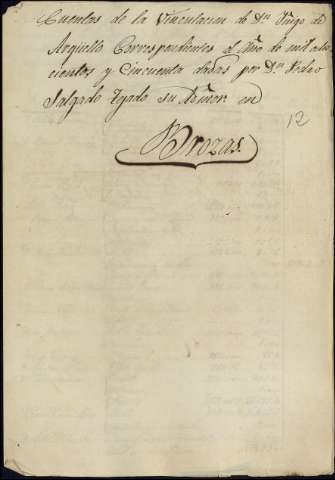 Cuentas de la Vinculacion de Dn. Iñigo de
Argüello Correspondientes al Año de mil ocho
cientos y Cincuenta dadas por Dn. Pedro
Salgado Tejado su Admor. en
12
Brozas.